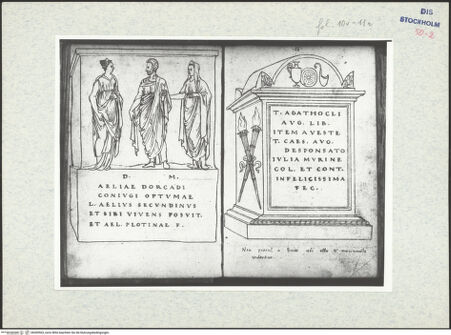 fol. 10v-11a
DIS
STOCKHOLM
50-2
D. M.
AELIAE DORCADI
CONIVGI OPTVMAE
L. AELIVS SECVNDINVS
ET SIBI VIVENS POSVIT.
ET AEL. PLOTINAE F.
T. AGATHOCLI
AVG. LIB.
ITEM A VESTE
T. CAES. AVG.
DESPONSATO
IVLIA MVRINE
COL. ET CONT.
INFELICISSIMA
FEC.